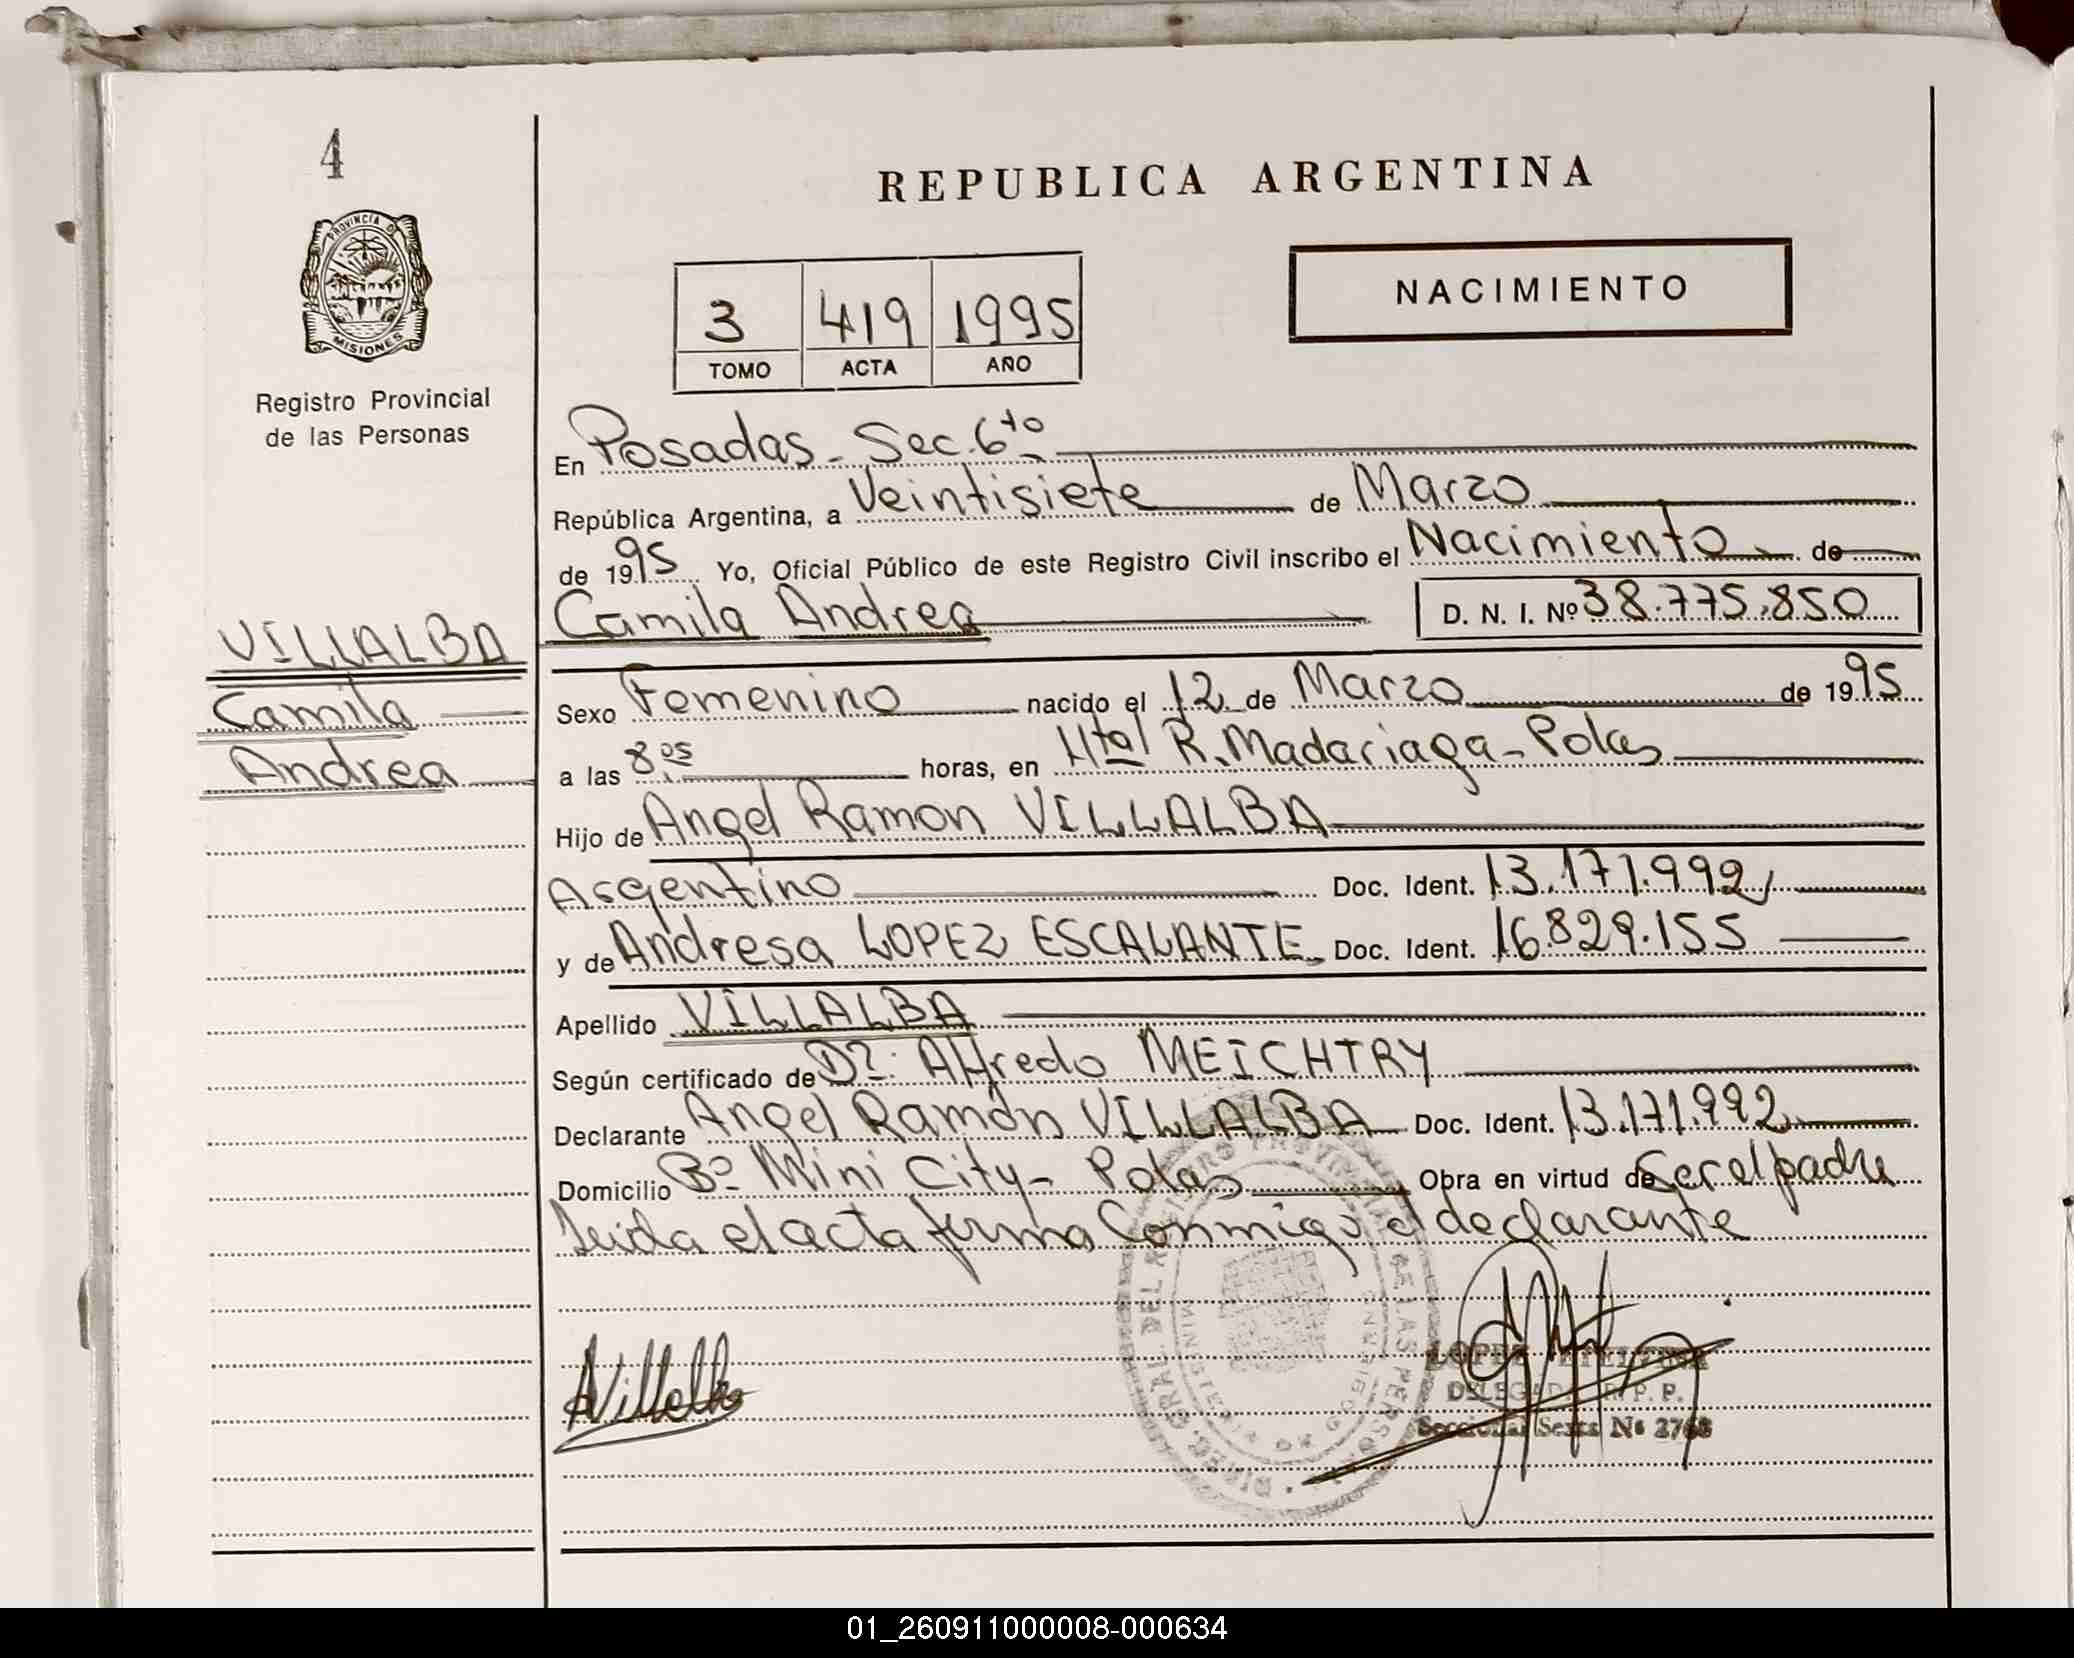 4
REPUBLICA ARGENTINA
PROVINCIA D
MISIONES
Registro Provincial
de las Personas
NACIMIENTO
3 419 1995
TOMO ACTA AÑO
En Posadas - Sec. 6to
República Argentina, a Veintisiete de Marzo
de 1995 Yo, Oficial Público de este Registro Civil inscribo el Nacimiento de
Camila Andrea D. N. I. Nº 38.775.850
VILLALBA
Camila
Andrea
Sexo Femenino nacido el 12 de Marzo de 1995
a las 8 05 horas, en Htal R. Madariaga - Pdas
Hijo de Angel Ramon VILLALBA
Argentino Doc. Ident. 13.171.992
y de Andresa LOPEZ ESCALANTE Doc. Ident. 16.829.155
Apellido VILLALBA
Según certificado de Dr: Alfredo MEICHTRY
Declarante Angel Ramón VILLALBA Doc. Ident. 13.171.992
Domicilio Bº Mini City - Pdas Obra en virtud de Ser el padre
Leida el acta firma Conmigo el declarante
AVillalba
LOPEZ
DELEGADA R. P. P.
Seccional Sexta Nº 2768
01_260911000008-000634